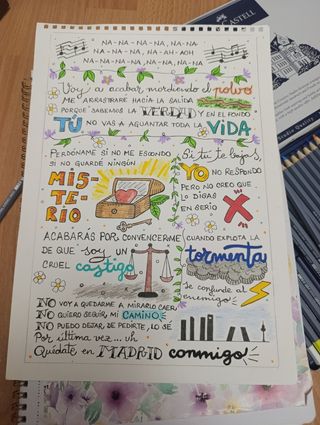 NA-NA-NA-NA, NA-NA
NA-NA-NA, NA-AH-AOH
NA-NA-NA-NA, NA-NA, NA
Voy a acabar mordiendo el polvo
ME ARRASTRARÉ HACIA LA SALIDA
PORQUE SABEMOS LA VERDAD Y EN EL FONDO
TÚ NO VAS A AGUANTAR TODA LA VIDA
PERDÓNAME SI NO ME ESCONDO
SI NO GUARDÉ NINGÚN
MIS-
TE-
RIO
ACABARÁS POR CONVENCERME
DE QUE soy UN
CRUEL castigo
Si tú te bajas,
YO NO RESPONDO
PERO NO CREO QUE
LO DIGAS
EN SERIO
CUANDO EXPLOTA LA
tormenta
Se confunde al
enemigo
NO VOY A QUEDARME A MIRARLO CAER,
NO QUIERO SEGUIR, MI CAMINO
NO PUEDO DEJAR, DE PEDIRTE, LO SÉ
Por última vez... uh
Quédate en MADRID conmigo
CASTELL